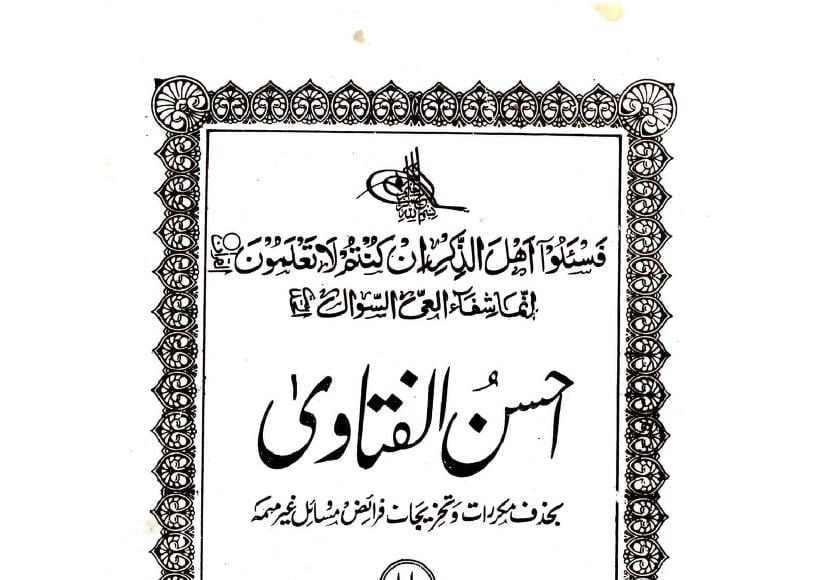 بسم الله
فَسْئَلُوْٓا اَهْلَ الذِّكْرِ اِنْ كُنْتُمْ لَا تَعْلَمُوْنَ
اِنَّمَا شِفَآءُ الْعِیِّ السُّوَالُ
احسنُ الفتاویٰ
بحذف مکررات و تخریجات فرائض و مسائل غیر مہمہ